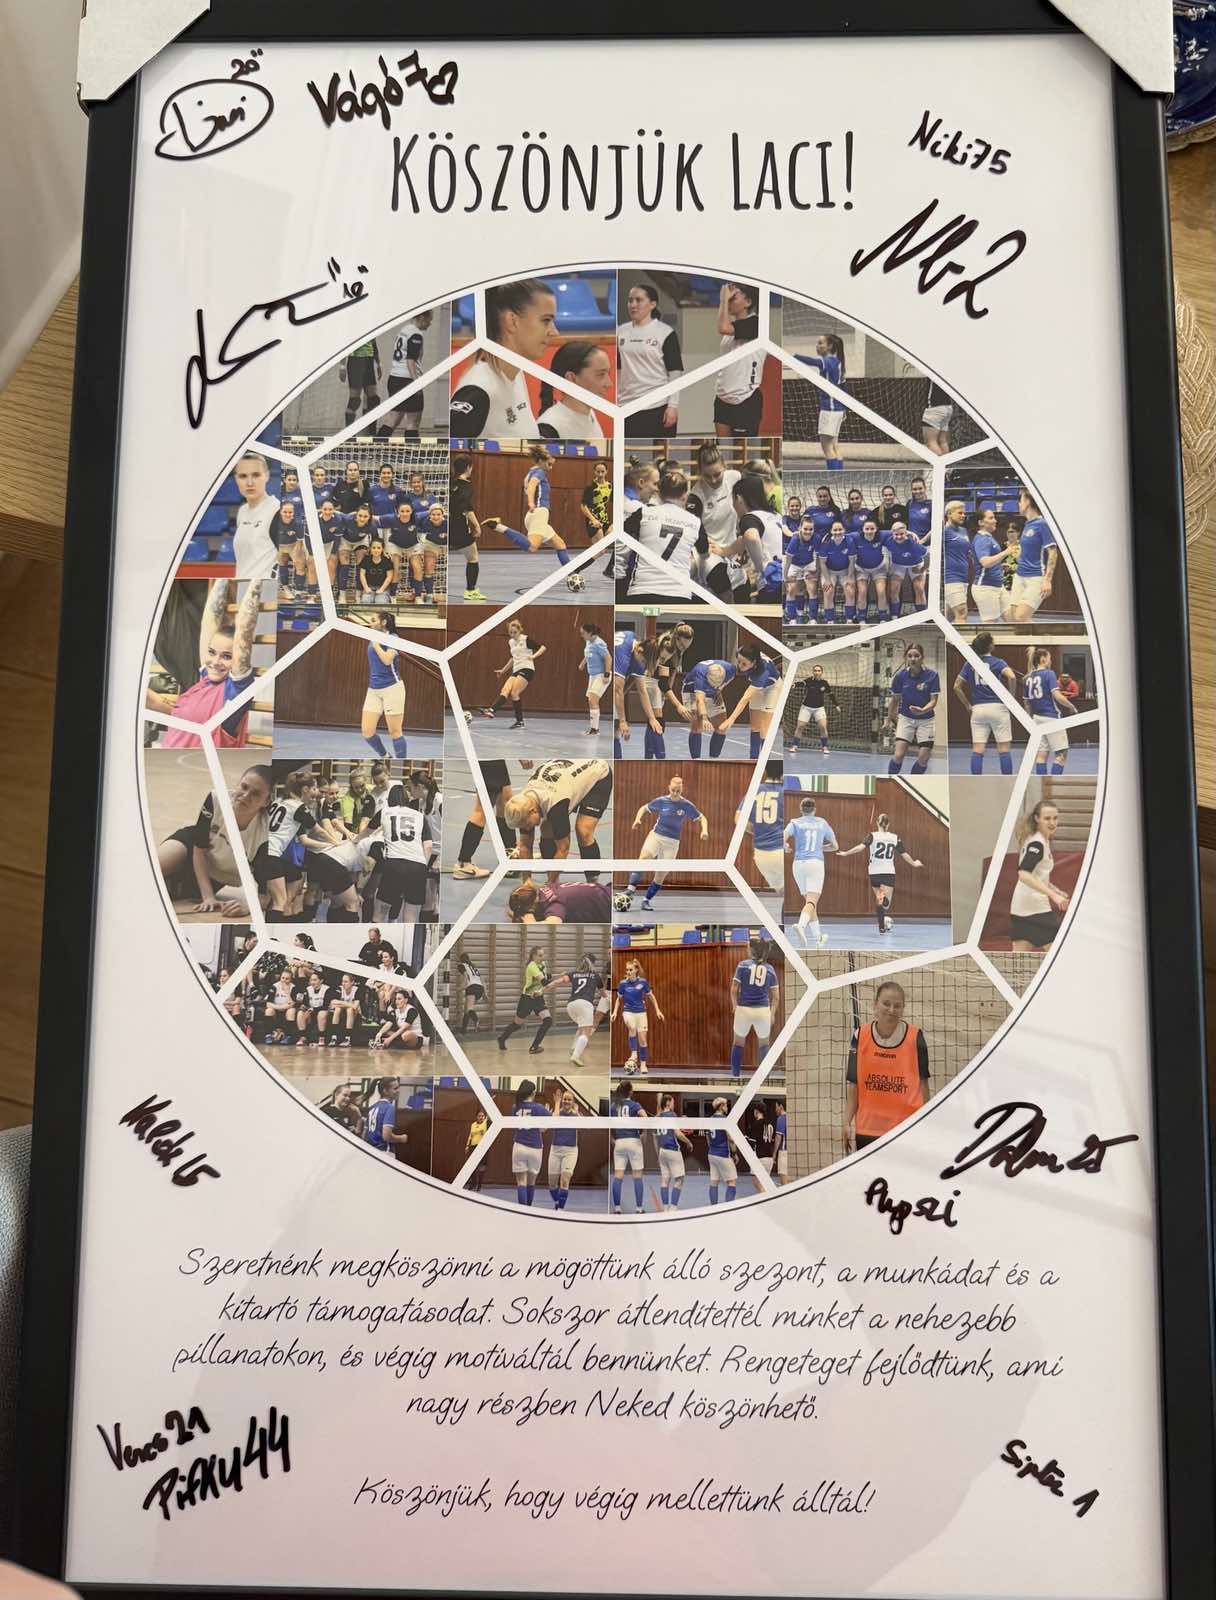 20
Vágó 7
KÖSZÖNJÜK LACI!
Niki 75
10
8
7
23
15
20
15
11
20
7
19
ABSOLUTE
TEAMSPORT
19
15
19
Szeretnénk megköszönni a mögöttünk álló szezont, a munkádat és a
kitartó támogatásodat. Sokszor átlendítettél minket a nehezebb
pillanatokon, és végig motiváltál bennünket. Rengeteget fejlődtünk, ami
nagy részben Neked köszönhető.
Veres 21
PiFKU 44
Köszönjük, hogy végig mellettünk álltál!